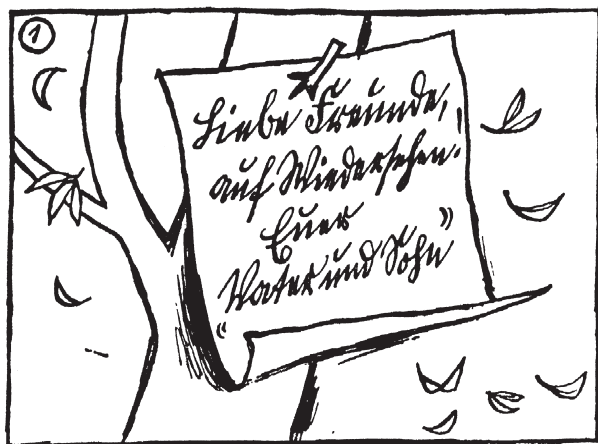 1
Liebe Freunde,
auf Wiedersehen!
Euer
„Vater und Sohn”